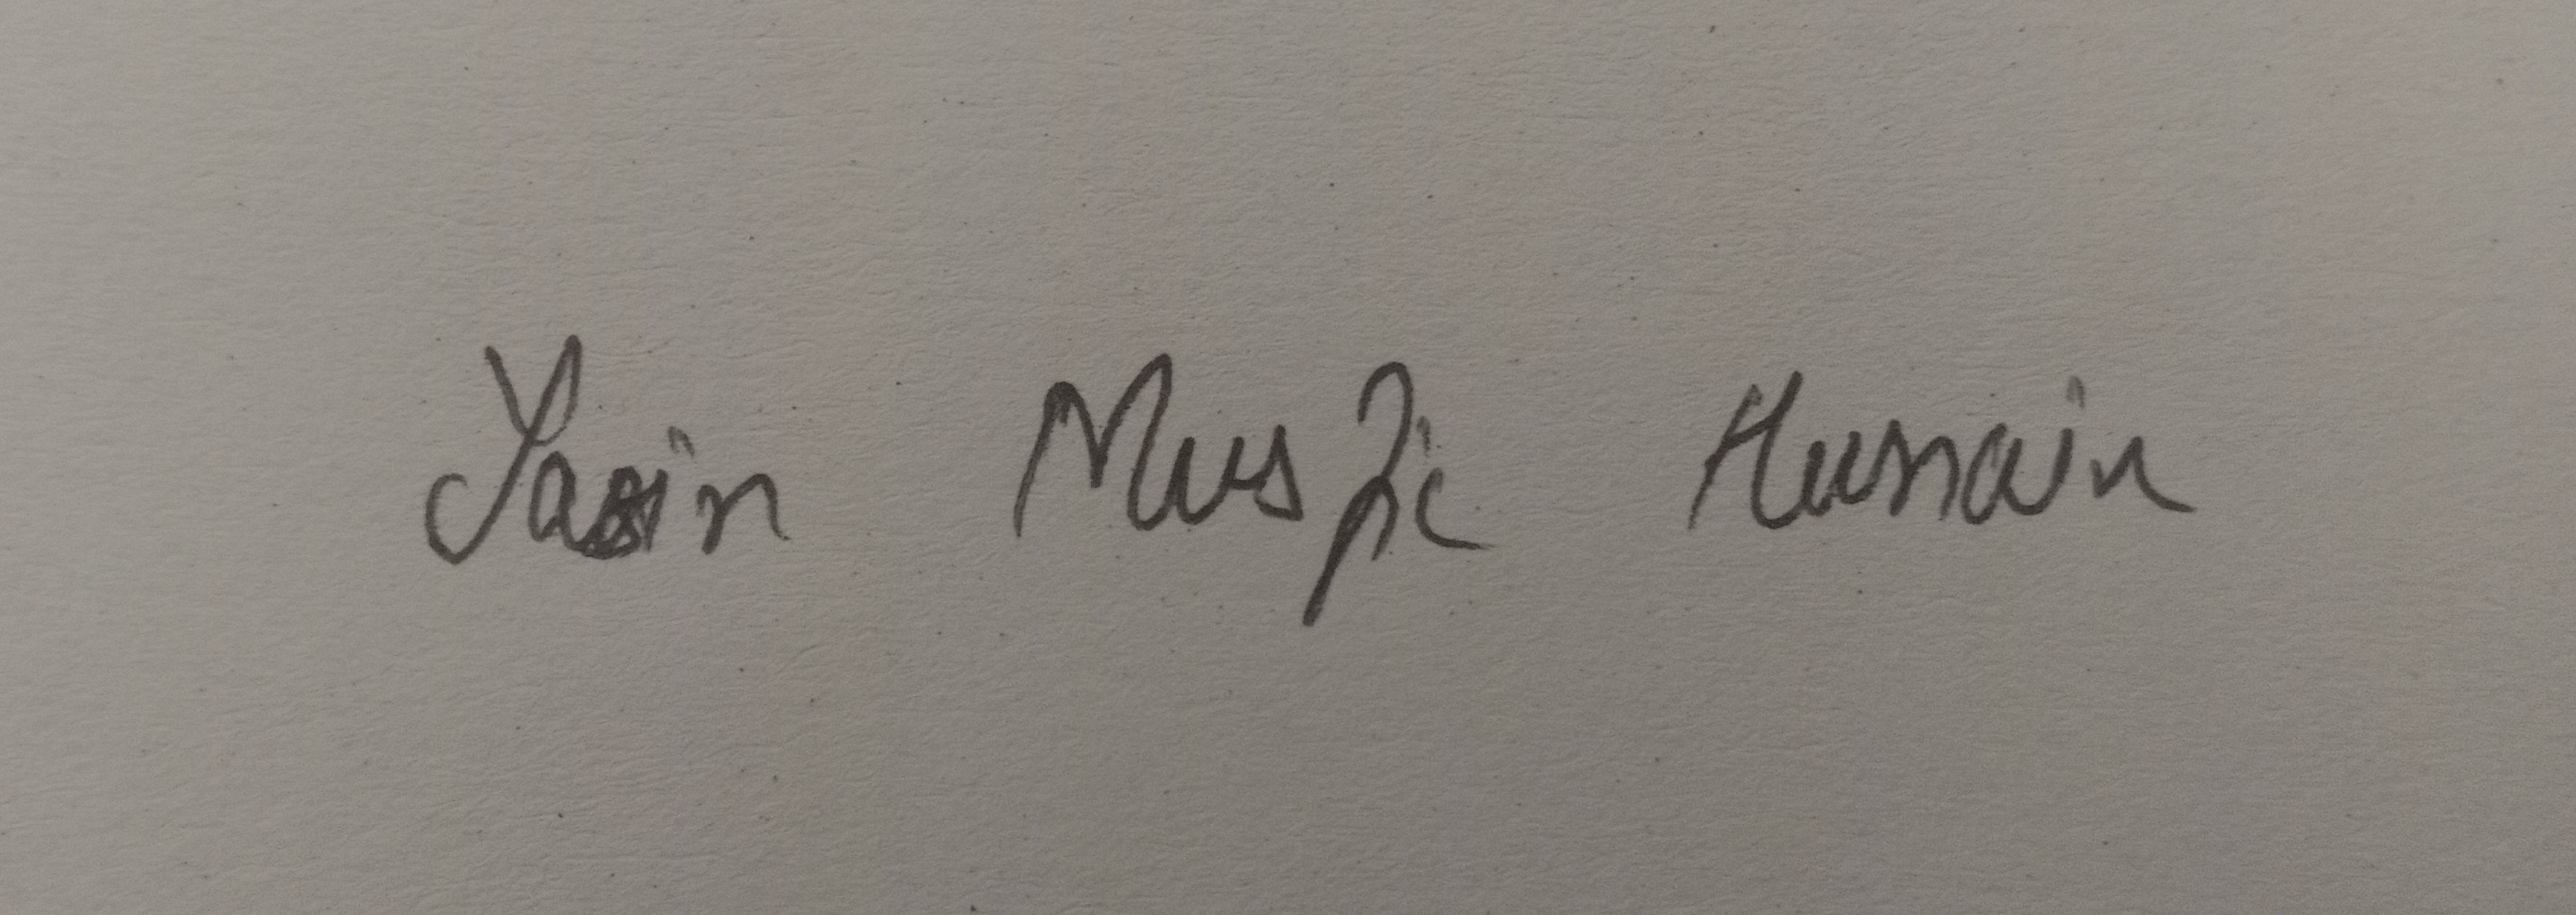 Yasin Musfic Husnain